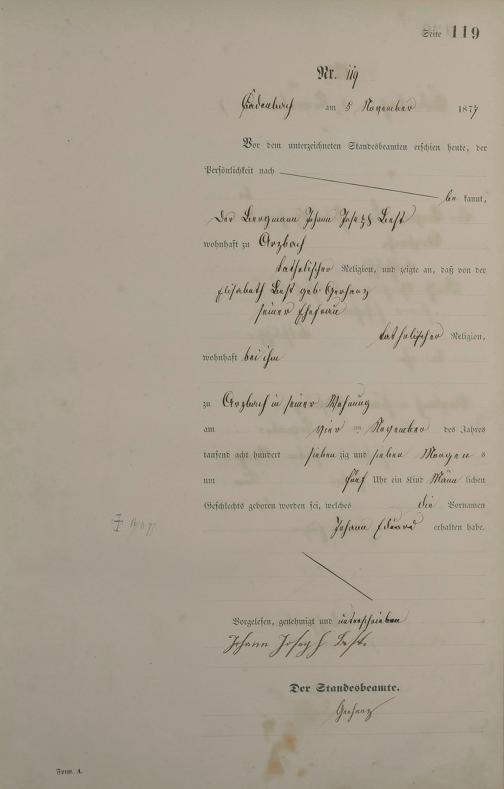 Seite 119
Nr. 119
Kadenbach am 5 November 1877
Vor dem unterzeichneten Standesbeamten erschien heute, der
Persönlichkeit nach
be kannt,
Der Bergmann Johann Joseph
wohnhaft zu Arzbach
katholischer Religion, und zeigte an, daß von der
Elisabeth geb Gerharz
seiner Ehefrau
katholischer Religion,
wohnhaft bei ihm
zu Arzbach in seiner Wohnung
am vier November des Jahres
tausend acht hundert sieben zig und sieben Morgen s
um fünf Uhr ein Kind Männ lichen
Geschlechts geboren worden sei, welches die Vornamen
Johann Eduard erhalten habe.
Vorgelesen, genehmigt und unterschrieben
Johann Joseph
Der Standesbeamte.
Gerharz
Form A.